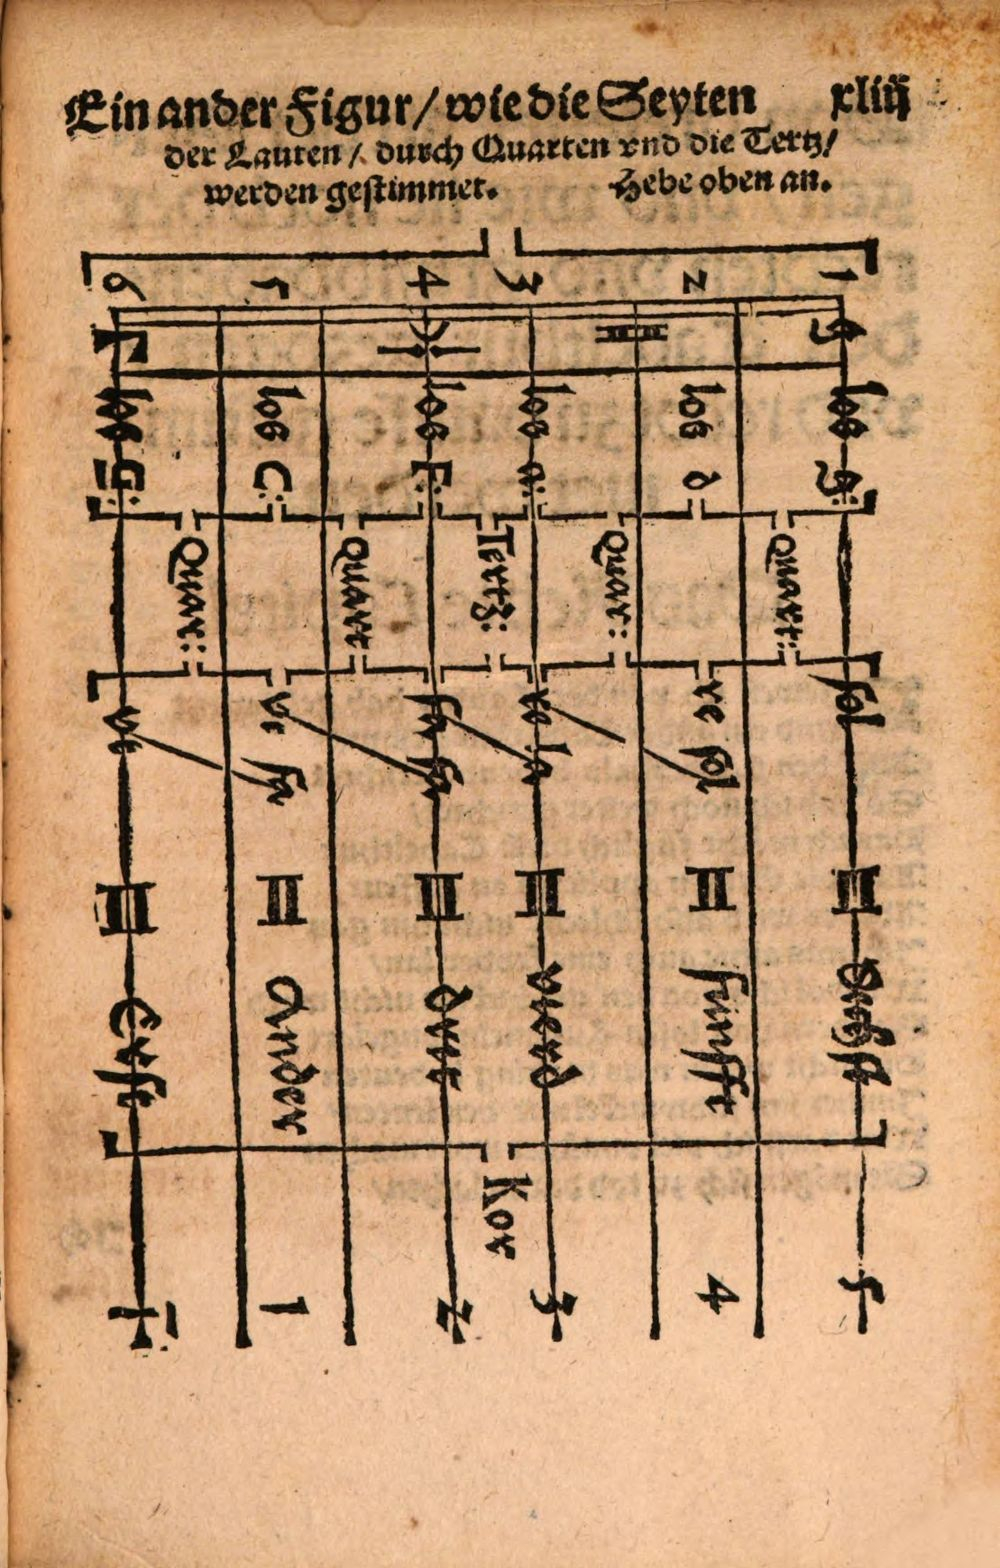 Ein ander Figur / wie die Seyten xliiij
der Lauten / durch Quarten vnd die Tertz /
werden gestimmet. Hebe oben an.
6 5 4 3 2 1
Γ g
los G: los C: los F: los a: los d los g:
Quar: Quart Tertz: Quar: Quart:
vt vt fa fa fa re la re sol sol
III II III II II III
Erst Ander dritt vierd funfft Sechst
Kor
1 2 3 4 5